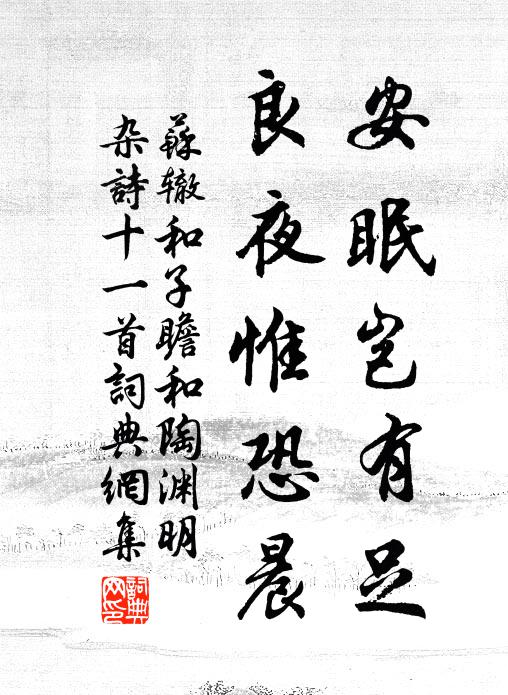 安眠岂有足
良夜惟恐晨
蘇辙和子瞻和陶渊明
杂詩十一首詞典網集
詞典
网印